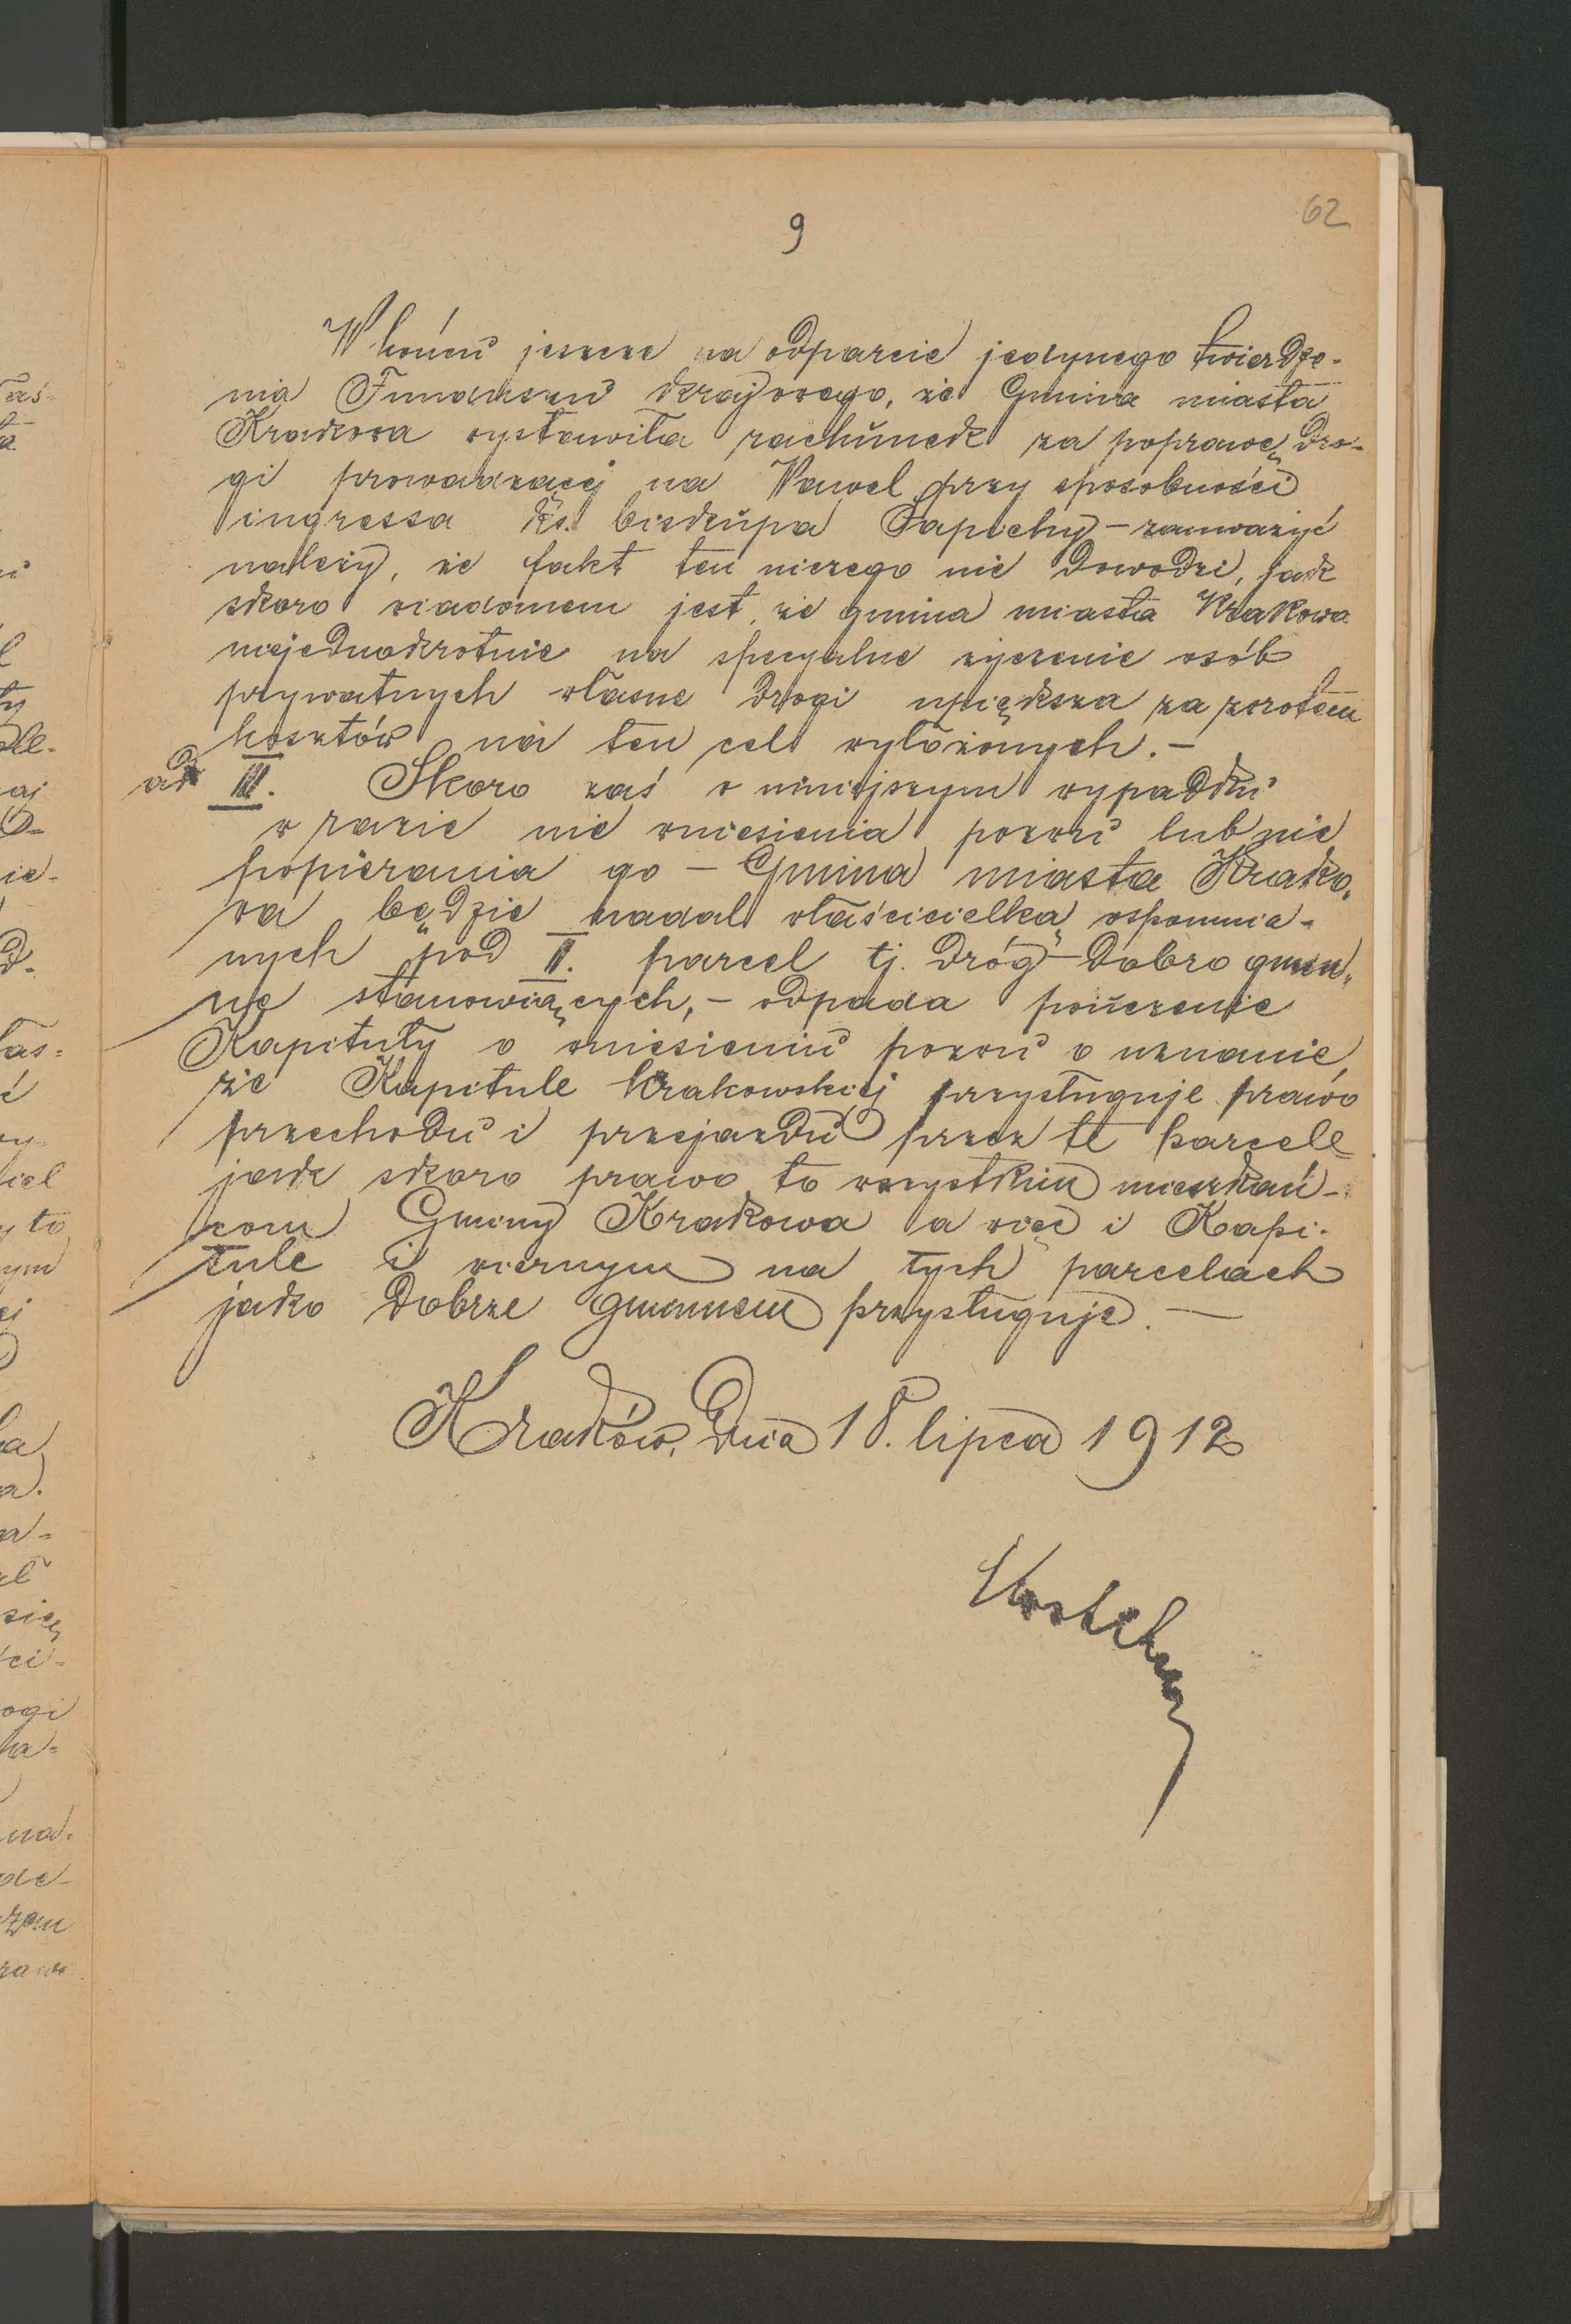 9
62
W końcu jeszcze na odparcie jedynego twierdze-
nia Funduszu krajowego, że Gmina miasta
Krakowa wystawiła rachunek za poprawę dro-
gi prowadzącej na Wawel przy sposobności
ingressa ks. biskupa Sapiehy – zauważyć
należy, że fakt ten niczego nie dowodzi, jak
skoro wiadomem jest, że gmina miasta Krakowa
niejednokrotnie na specyalne życzenie osób
prywatnych własne drogi upiększa za zwrotem
kosztów na ten cel wyłożonych. –
ad III. Skoro zaś w niniejszym wypadku
w razie nie wniesienia pozwu lub nie
popierania go – Gmina miasta Krako-
wa będzie nadal właścicielką wspomnia-
nych pod II. parcel tj. dróg dobro gmin-
ne stanowiących, – odpada pouczenie
Kapituły o wniesieniu pozwu o uznanie,
że Kapitule krakowskiej przysługuje prawo
przechodu i przejazdu przez te parcele
jak skoro prawo to wszystkim mieszkań-
com Gminy Krakowa a więc i Kapi-
tule i wiernym na tych parcelach
jako dobrze gminnem przysługuje. –
Kraków, dnia 18. lipca 1912